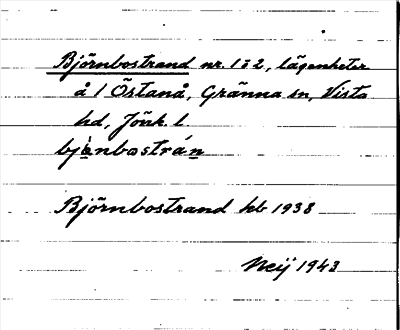 Björnbostrand nr. 1 o 2, lägenheter
å 1 Östanå, Gränna sn, Vista
hd, Jönk. l.
bjö̀nbostrán
Björnbostrand hb 1938
Neij 1943